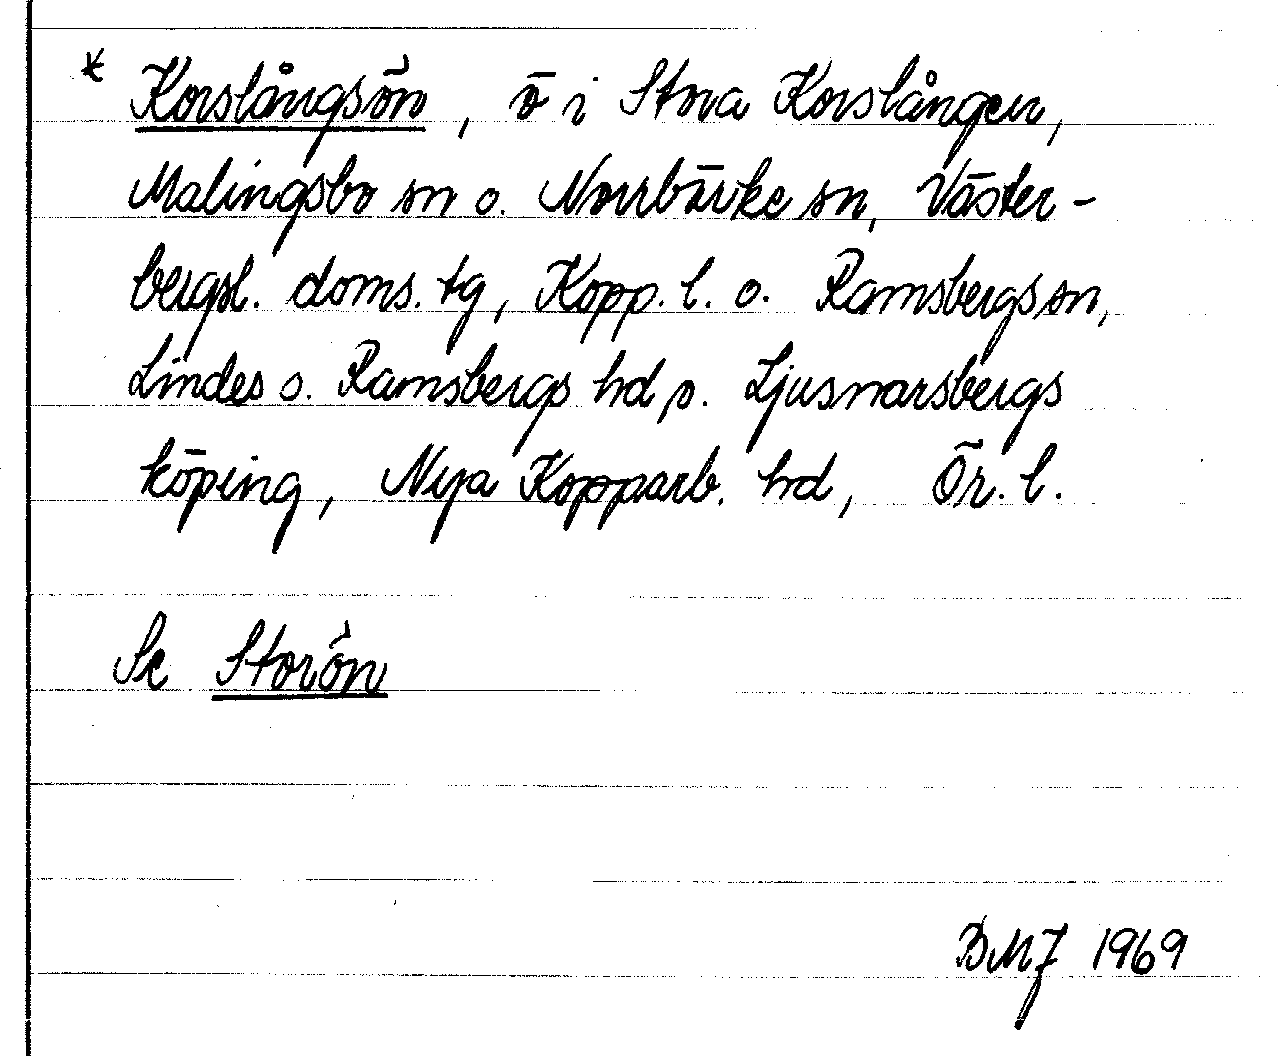 * Korslångsön, ö i Stora Korslången,
Malingsbo sn o. Norrbärke sn, Väster-
bergsl. doms. tg, Kopp. l. o. Ramsbergs sn,
Lindes o. Ramsbergs hd, o. Ljusnarsbergs
köping, Nya Kopparb. hd, Ör. l.
Se Storön
BMJ 1969